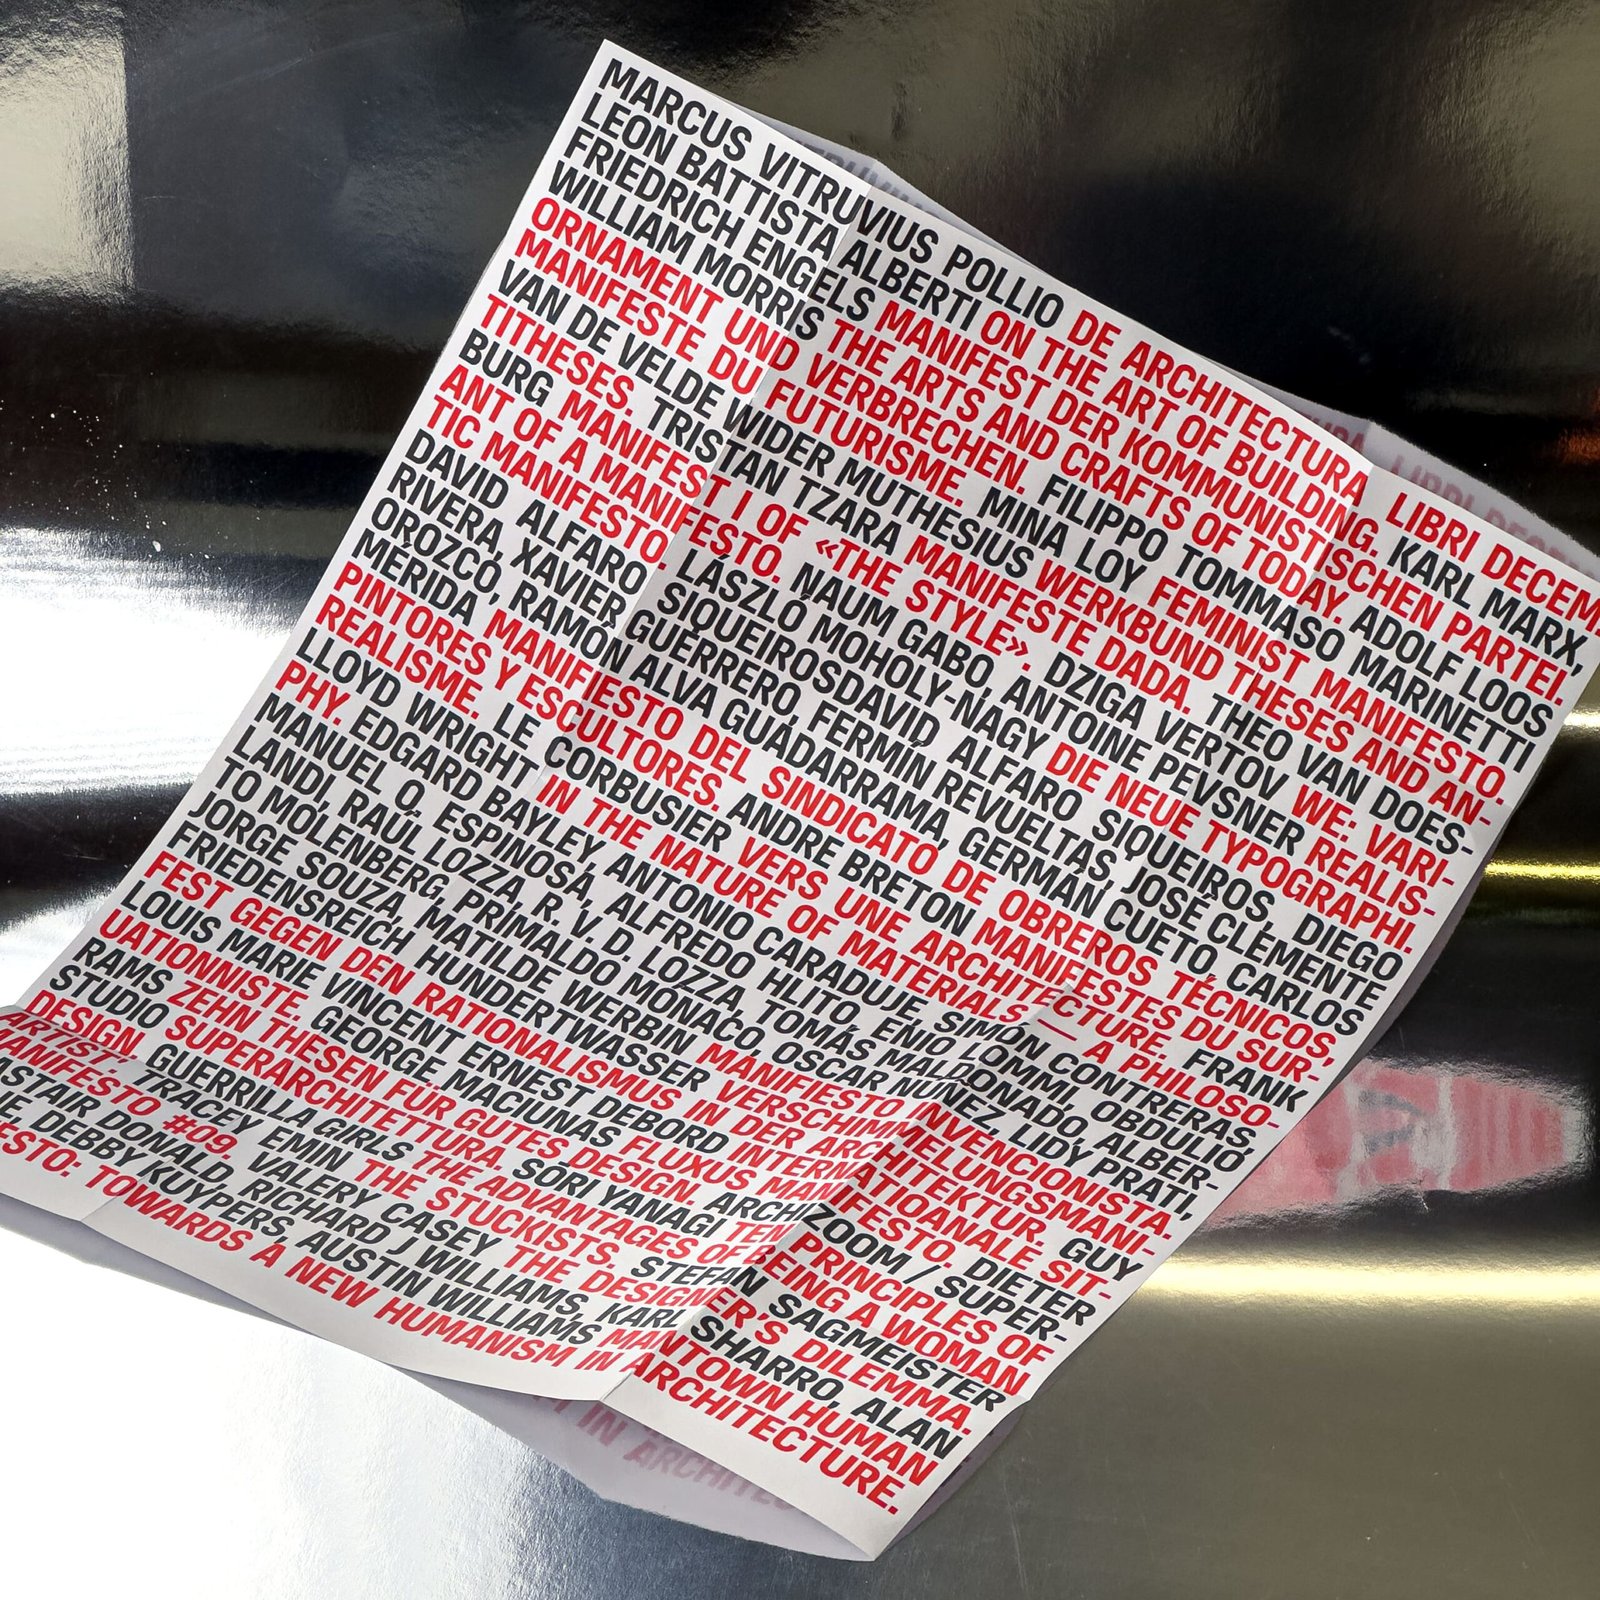 MARCUS VITRUVIUS POLLIO DE ARCHITECTURA LIBRI DECEM.
LEON BATTISTA ALBERTI ON THE ART OF BUILDING. KARL MARX,
FRIEDRICH ENGELS MANIFEST DER KOMMUNISTISCHEN PARTEI.
WILLIAM MORRIS THE ARTS AND CRAFTS OF TODAY. ADOLF LOOS
ORNAMENT UND VERBRECHEN. FILIPPO TOMMASO MARINETTI
MANIFESTE DU FUTURISME. MINA LOY FEMINIST MANIFESTO.
VAN DE VELDE WIDER MUTHESIUS WERKBUND THESES AND AN-
TITHESES. TRISTAN TZARA MANIFESTE DADA. THEO VAN DOES-
BURG MANIFEST I OF «THE STYLE». DZIGA VERTOV WE: VARI-
ANT OF A MANIFESTO. NAUM GABO, ANTOINE PEVSNER REALIS-
TIC MANIFESTO. LÁSZLÓ MOHOLY-NAGY DIE NEUE TYPOGRAPHI.
DAVID ALFARO SIQUEIROSDAVID ALFARO SIQUEIROS, DIEGO
RIVERA, XAVIER GUERRERO, FERMÍN REVUELTAS, JOSÉ CLEMENTE
OROZCO, RAMÓN ALVA GUADARRAMA, GERMÁN CUETO, CARLOS
MÉRIDA MANIFIESTO DEL SINDICATO DE OBREROS TÉCNICOS,
PINTORES Y ESCULTORES. ANDRE BRETON MANIFESTES DU SUR-
REALISME. LE CORBUSIER VERS UNE ARCHITECTURE. FRANK
LLOYD WRIGHT IN THE NATURE OF MATERIALS — A PHILOSO-
PHY. EDGARD BAYLEY, ANTONIO CARADUJE, SIMÓN CONTRERAS,
MANUEL O. ESPINOSA, ALFREDO HLITO, ENIO IOMMI, OBDULIO
LANDI, RAÚL LOZZA, R. V. D. LOZZA, TOMÁS MALDONADO, ALBER-
TO MOLENBERG, PRIMALDO MONACO OSCAR NÚÑEZ, LIDY PRATI,
JORGE SOUZA, MATILDE WERBIN MANIFIESTO INVENCIONISTA.
FRIEDENSREICH HUNDERTWASSER VERSCHIMMELUNGSMANI-
FEST GEGEN DEN RATIONALISMUS IN DER ARCHITEKTUR. GUY
LOUIS MARIE VINCENT ERNEST DEBORD INTERNATIOANALE SIT-
UATIONNISTE. GEORGE MACIUNAS FLUXUS MANIFESTO. DIETER
RAMS ZEHN THESEN FÜR GUTES DESIGN. ARCHIZOOM / SUPER-
STUDIO SUPERARCHITETTURA. SORI YANAGI TEN PRINCIPLES OF
DESIGN. GUERRILLA GIRLS THE ADVANTAGES OF BEING A WOMAN
ARTIST. TRACEY EMIN THE STUCKISTS. STEFAN SAGMEISTER
MANIFESTO #09. VALERY CASEY THE DESIGNER'S DILEMMA.
DONALD, RICHARD J WILLIAMS, KARL SHARRO, ALAN
DEBBY KUYPERS, AUSTIN WILLIAMS MANTOWN HUMAN
TOWARDS A NEW HUMANISM IN ARCHITECTURE.